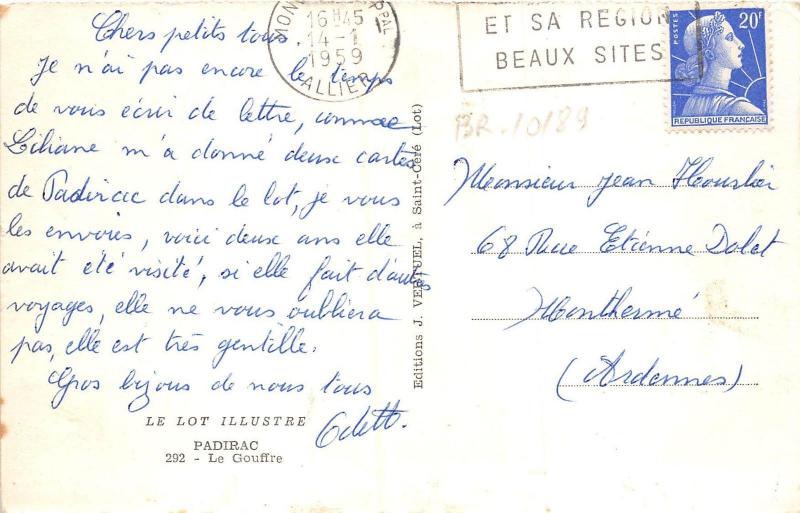 Chers petits tous.
Je n'ai pas encore le temps
de vous écrir de lettre, comme
Liliane m'a donné deux cartes
de Padirac dans le lot, je vous
les envoies, voici deux ans elle
avait été visité, si elle fait d'autres
voyages, elle ne vous oubliera
pas, elle est très gentille.
Gros bijous de nous tous
Odette.
LE LOT ILLUSTRE
PADIRAC
292 - Le Gouffre
Editions J. VERTUEL, à Saint-Céré (Lot)
MON PPAL
16H45
14-1
1959
ALLIER
ET SA REGION
BEAUX SITES
POSTES
20F
REPUBLIQUE FRANÇAISE
BR-10189
Monsieur Jean
68 Rue Etienne Dolet
Monthermé
(Ardennes)